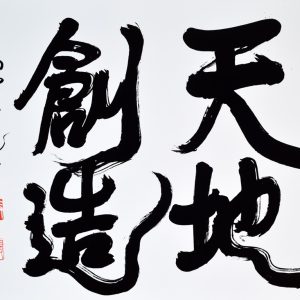 天地
創造